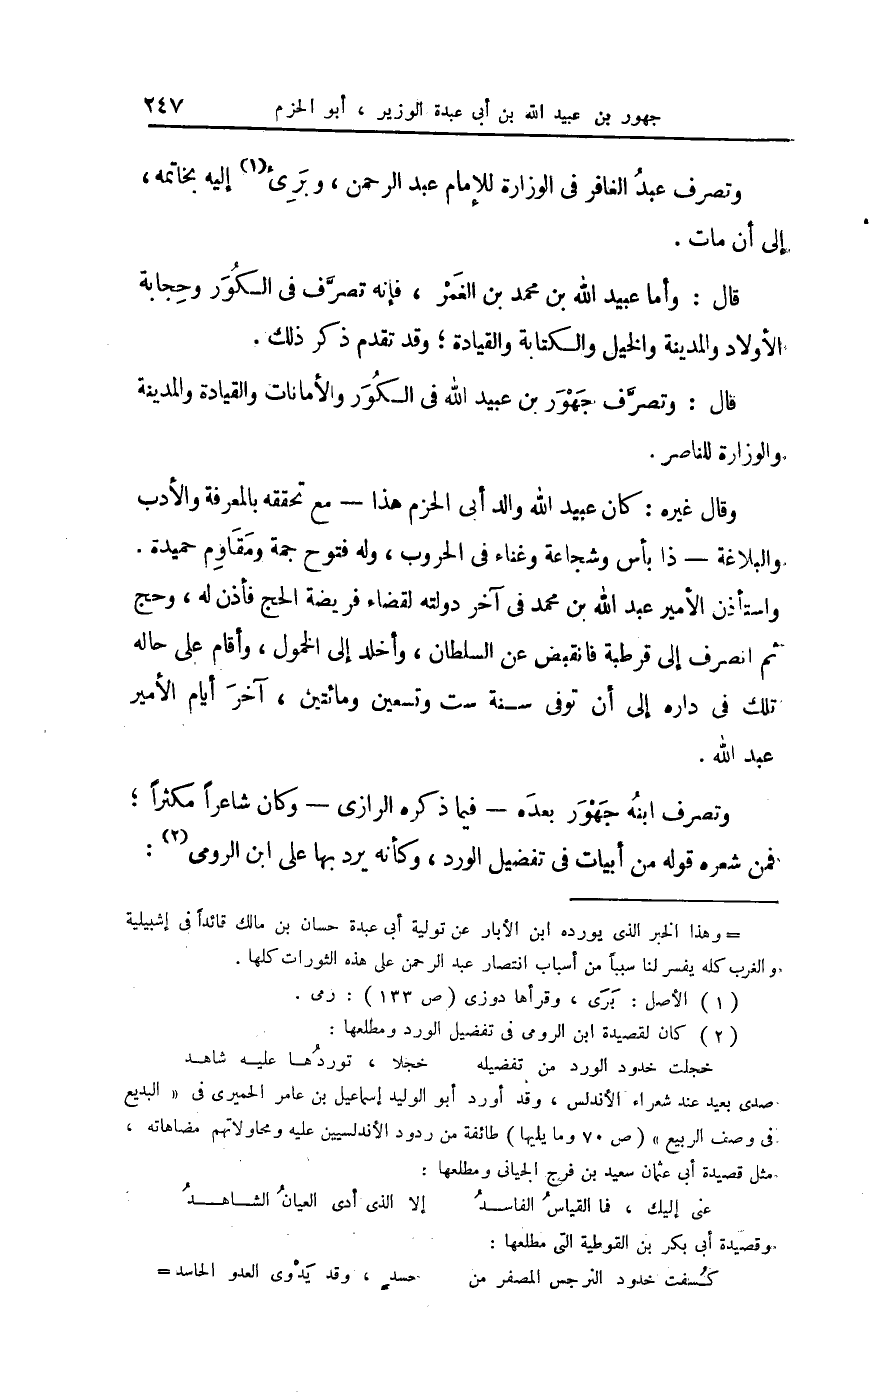 جهور بن عبيد الله بن أبى عبدة الوزير ، أبو الحزم ٢٤٧
وتصرف عبدُ الغافر فى الوزارة للإمام عبد الرحمن ، وبَرِئ(١) إليه بخاتمه ،
إلى أن مات .
قال : وأما عبيد الله بن محمد بن الغَمْر ، فإنه تصرَّف فى الكُوَر وحِجابة
الأولاد والمدينة والخيل والكتابة والقيادة ؛ وقد تقدم ذكر ذلك .
قال : وتصرَّف جَهْوَر بن عبيد الله فى الكُوَر والأمانات والقيادة والمدينة
والوزارة للناصر .
وقال غيره : كان عبيد الله والد أبى الحزم هذا — مع تحققه بالمعرفة والأدب
والبلاغة — ذا بأس وشجاعة وغناء فى الحروب ، وله فتوح جمة ومَقَاوِم حميدة .
واستأذن الأمير عبد الله بن محمد فى آخر دولته لقضاء فريضة الحج فأذن له ، وحج
ثم انصرف إلى قرطبة فانقبض عن السلطان ، وأخلد إلى الخمول ، وأقام على حاله
تلك فى داره إلى أن توفى سنة ست وتسعين ومائتين ، آخرَ أيام الأمير
عبد الله .
وتصرف ابنُه جَهْوَر بعدَه — فيما ذكره الرازى — وكان شاعراً مكثراً ؛
فمن شعره قوله من أبيات فى تفضيل الورد ، وكأنه يرد بها على ابن الرومى(٢) :
= وهذا الخبر الذى يورده ابن الأبار عن تولية أبى عبدة حسان بن مالك قائداً فى إشبيلية
والغرب كله يفسر لنا سبباً من أسباب انتصار عبد الرحمن على هذه الثورات كلها .
(١) الأصل : بَرَى ، وقرأها دوزى (ص ١٣٣) : رمى .
(٢) كان لقصيدة ابن الرومى فى تفضيل الورد ومطلعها :
خجلت خدود الورد من تفضيله خجلا ، توردُها عليه شاهد
صدى بعيد عند شعراء الأندلس ، وقد أورد أبو الوليد إسماعيل بن عامر الحميرى فى « البديع
فى وصف الربيع » (ص ٧٠ وما يليها) طائفة من ردود الأندلسيين عليه ومحاولاتهم مضاهاته ،
مثل قصيدة أبى عثمان سعيد بن فرج الجيانى ومطلعها :
عنى إليك ، فما القياسُ الفاسدُ إلا الذى أدى العيانُ الشاهدُ
وقصيدة أبى بكر بن القوطية التى مطلعها :
كُسفت خدود النرجس المصفر من حسدٍ ، وقد يَدْوى العدو الحاسد =